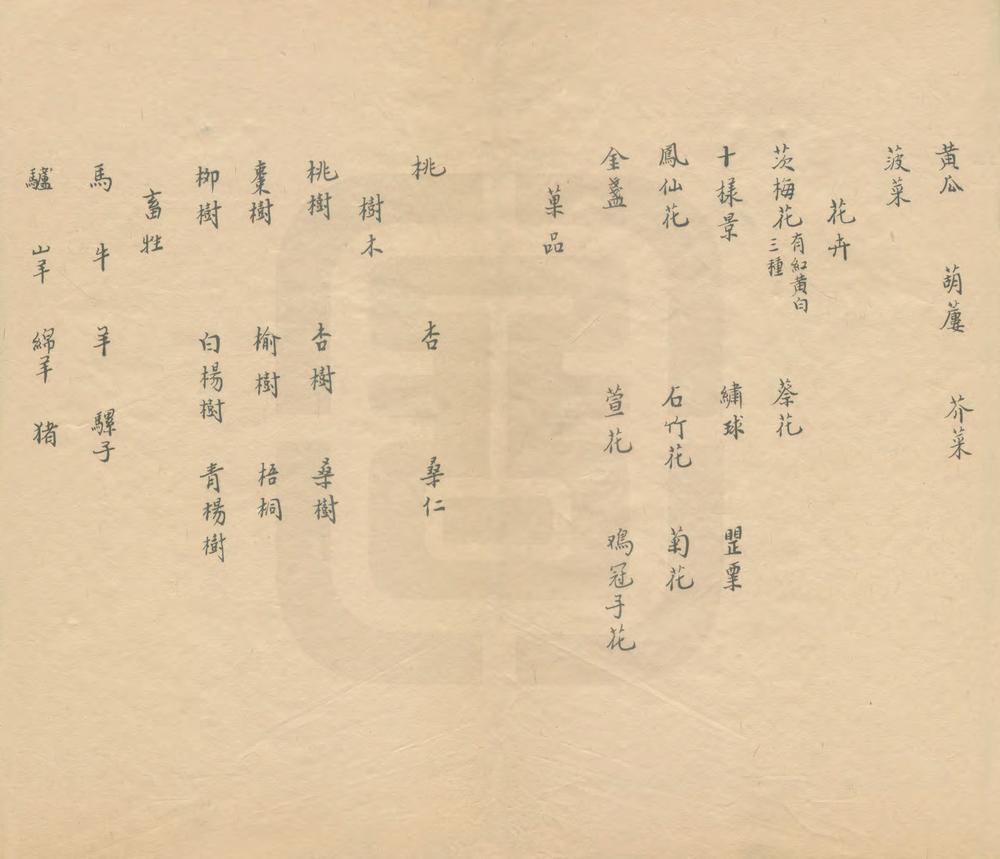 黄瓜 葫蘆 芥菜
菠菜
花卉
茨梅花 有紅黄白三種 葵花
十樣景 繡球 罌粟
鳳仙花 石竹花 菊花
金盞 萱花 鷄冠子花
菓品
桃 杏 桑仁
樹木
桃樹 杏樹 桑樹
棗樹 榆樹 梧桐
柳樹 白楊樹 青楊樹
畜牲
馬 牛 羊 騾子
驢 山羊 綿羊 猪